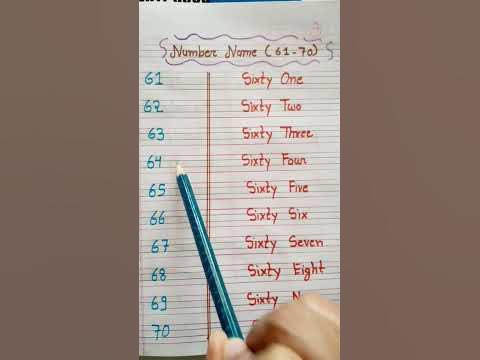 Number Name (61-70)
61 Sixty One
62 Sixty Two
63 Sixty Three
64 Sixty Four
65 Sixty Five
66 Sixty Six
67 Sixty Seven
68 Sixty Eight
69 Sixty
70